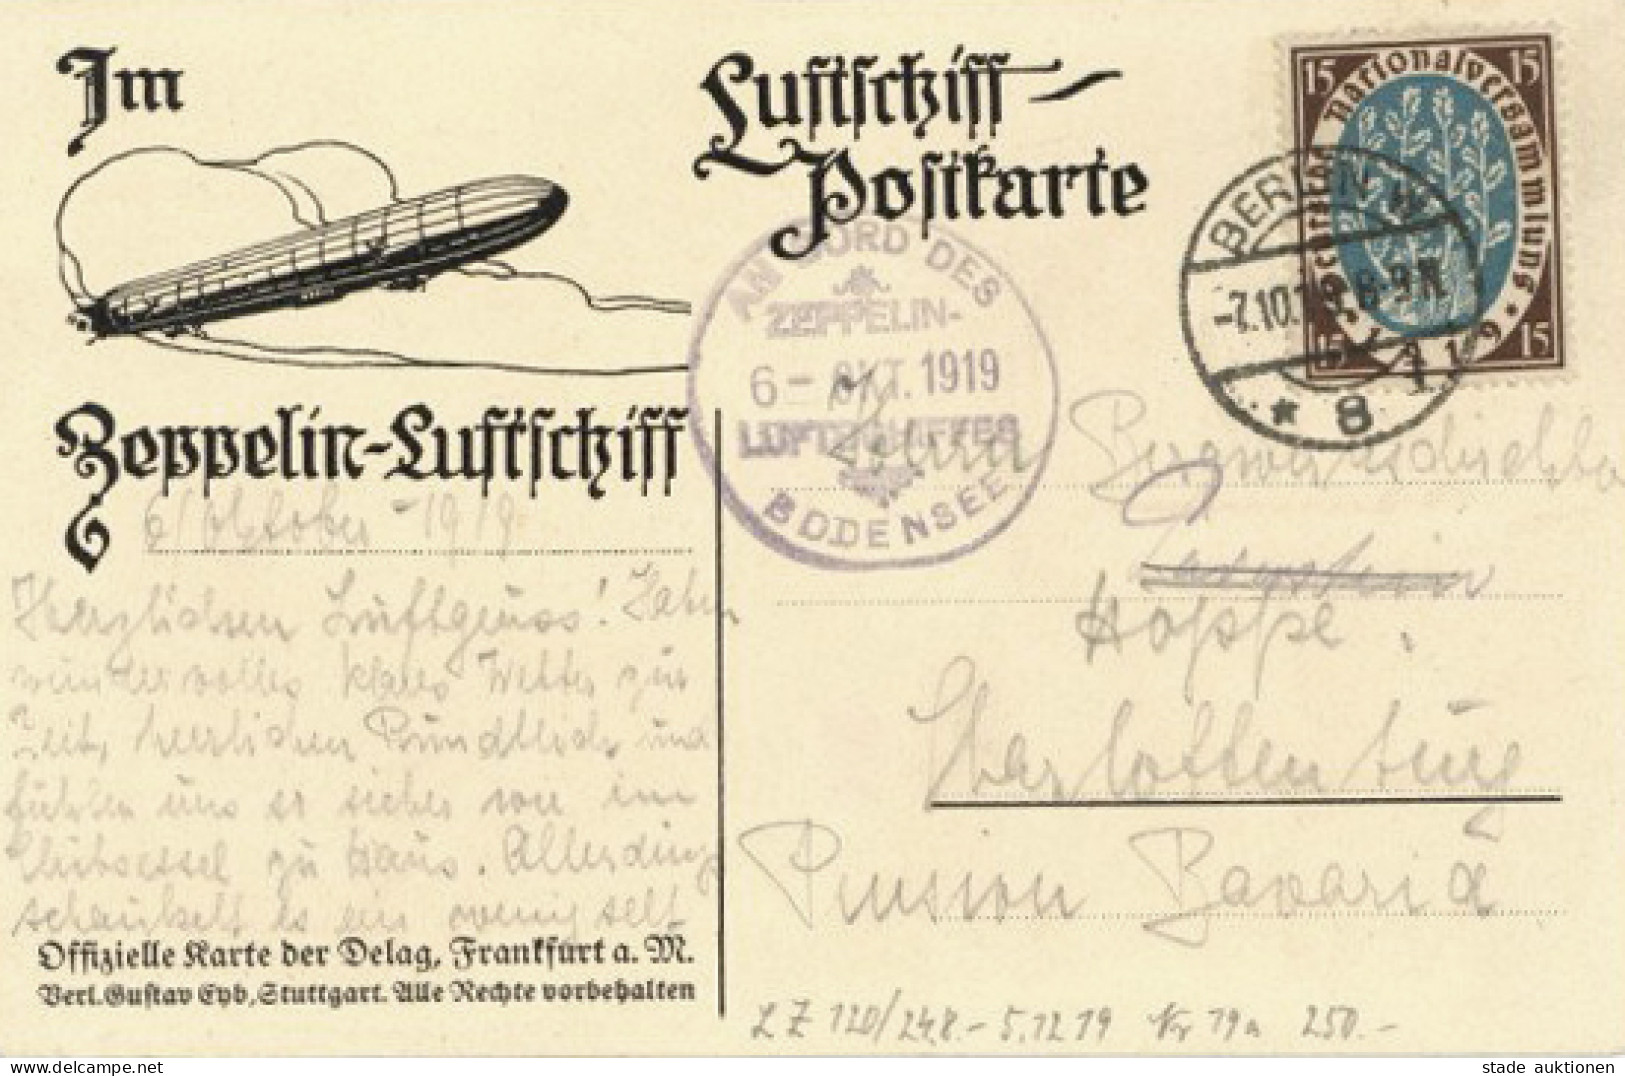 Im
Luftschiff-
Postkarte
15 15
Nationalversammlung
1919
15 15
BERLIN W
-7.10.19. 8-9 N
* 8
AN BORD DES
ZEPPELIN-
6 - OKT. 1919
LUFTSCHIFFES
BODENSEE
Zeppelin-Luftschiff
6/Oktober - 1919
Herzlichen Luftgruss! Haben
wundervolles klares Wetter zur
Zeit, herrlichen Rundblick und
fühlen uns so sicher wie im
Clubsessel zu Haus. Allerdings
schaukelt es ein wenig
Hoppe.
Charlottenburg
Pension Bavaria
Offizielle Karte der Delag, Frankfurt a. M.
Verl. Gustav Eyb, Stuttgart. Alle Rechte vorbehalten
LZ 120/24.8.-5.12.19 Nr 19a 250.-
stade auktionen